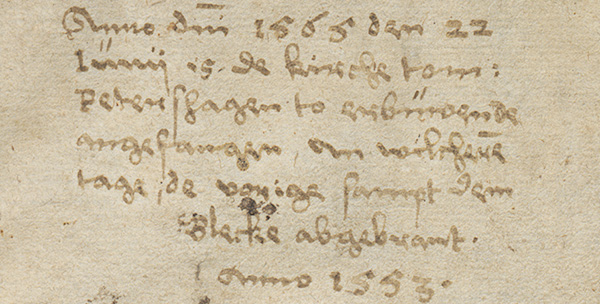 Anno dnī 1565 den 22
Iunij is de kircke tom
Petershagen to erbuwende
angefangen, an wilcherē
tage, de vorige sampt dem
Blecke abgebrant.
Anno 1553.